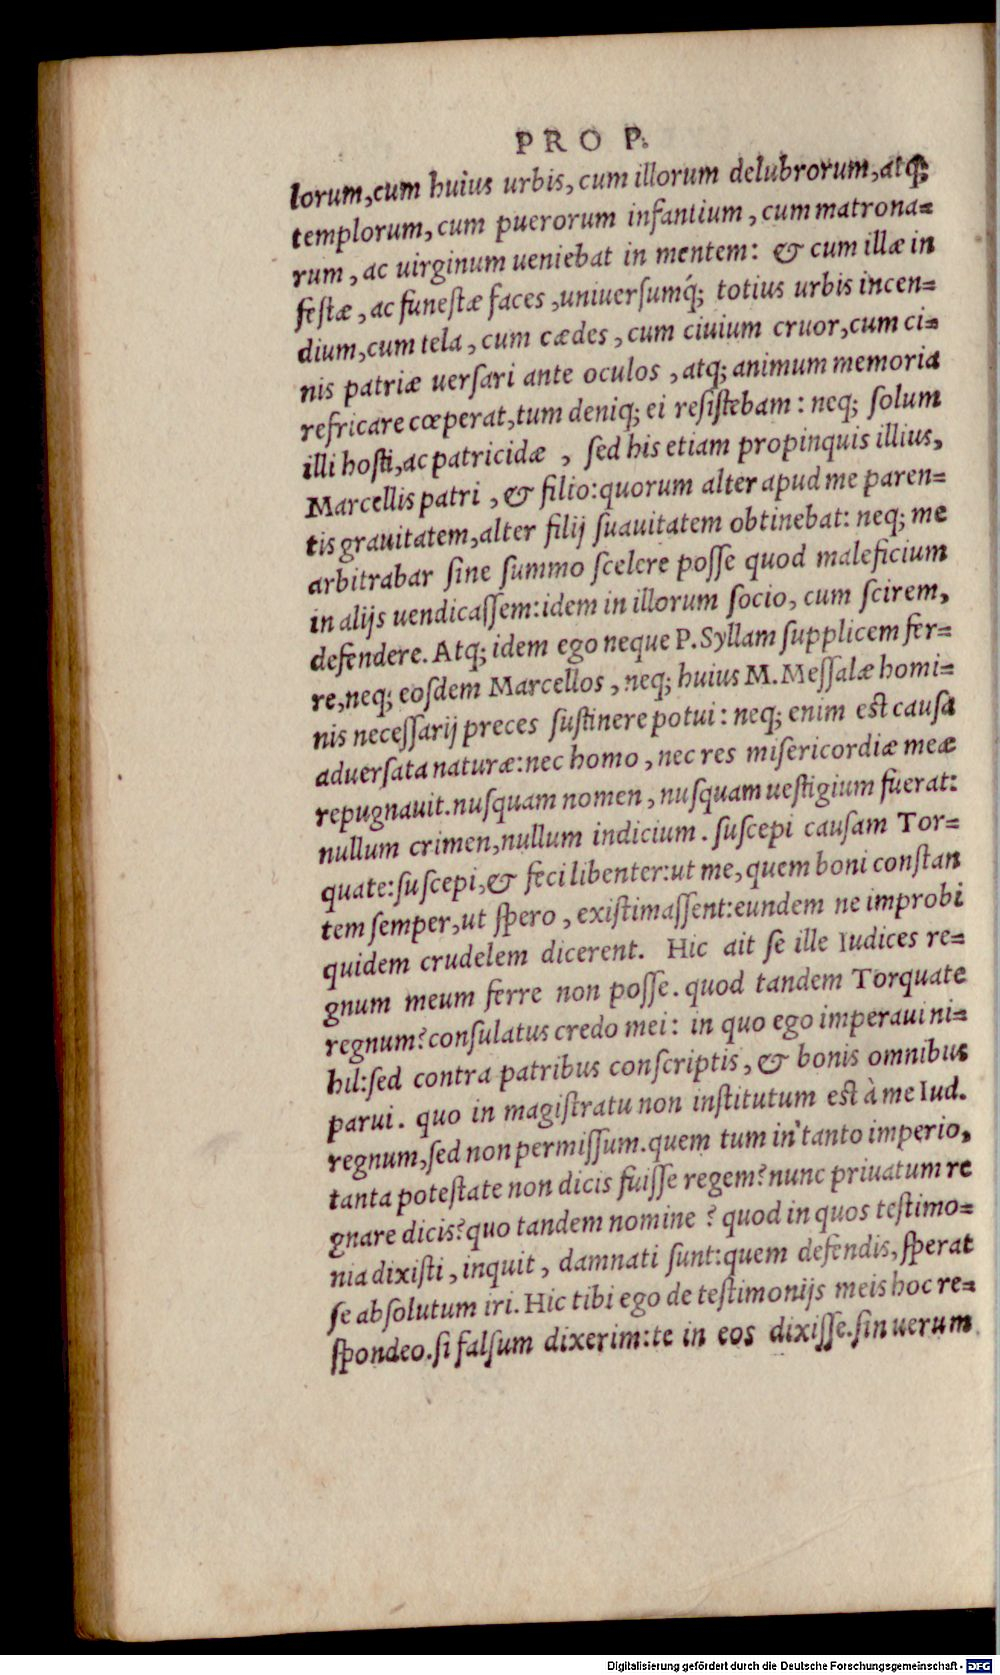 PRO P.
lorum,cum huius urbis, cum illorum delubrorum,atq;
templorum, cum puerorum infantium, cum matrona=
rum, ac uirginum ueniebat in mentem: & cum illæ in
feſtæ, ac funeſtæ faces, uniuerſumq́; totius urbis incen=
dium,cum tela, cum cædes, cum ciuium cruor,cum ci=
nis patriæ uerſari ante oculos, atq; animum memoria
refricare cœperat,tum deniq; ei reſiſtebam: neq; ſolum
illi hoſti,ac patricidæ, ſed his etiam propinquis illius,
Marcellis patri, & filio:quorum alter apud me paren=
tis grauitatem,alter filij ſuauitatem obtinebat: neq; me
arbitrabar ſine ſummo ſcelere poſſe quod maleficium
in alijs uendicaſſem:idem in illorum ſocio, cum ſcirem,
defendere. Atq; idem ego neque P. Syllam ſupplicem fer=
re,neq; eoſdem Marcellos, neq; huius M. Meſſalæ homi=
nis neceſſarij preces ſuſtinere potui: neq; enim eſt cauſa
aduerſata naturæ:nec homo, nec res miſericordiæ meæ
repugnauit. nuſquam nomen, nuſquam ueſtigium fuerat:
nullum crimen,nullum indicium. ſuſcepi cauſam Tor=
quate:ſuſcepi,& feci libenter:ut me, quem boni conſtan
tem ſemper,ut ſpero, exiſtimaſſent:eundem ne improbi
quidem crudelem dicerent. Hic ait ſe ille Iudices re=
gnum meum ferre non poſſe. quod tandem Torquate
regnum? conſulatus credo mei: in quo ego imperaui ni=
hil:ſed contra patribus conſcriptis, & bonis omnibus
parui. quo in magiſtratu non inſtitutum eſt à me Iud.
regnum,ſed non permiſſum. quem tum in tanto imperio,
tanta poteſtate non dicis fuiſſe regem? nunc priuatum re
gnare dicis? quo tandem nomine? quod in quos teſtimo=
nia dixiſti, inquit, damnati ſunt:quem defendis, ſperat
ſe abſolutum iri. Hic tibi ego de teſtimonijs meis hoc re=
ſpondeo. ſi falſum dixerim:te in eos dixiſſe. ſin uerum
Digitalisierung gefördert durch die Deutsche Forschungsgemeinschaft - DFG